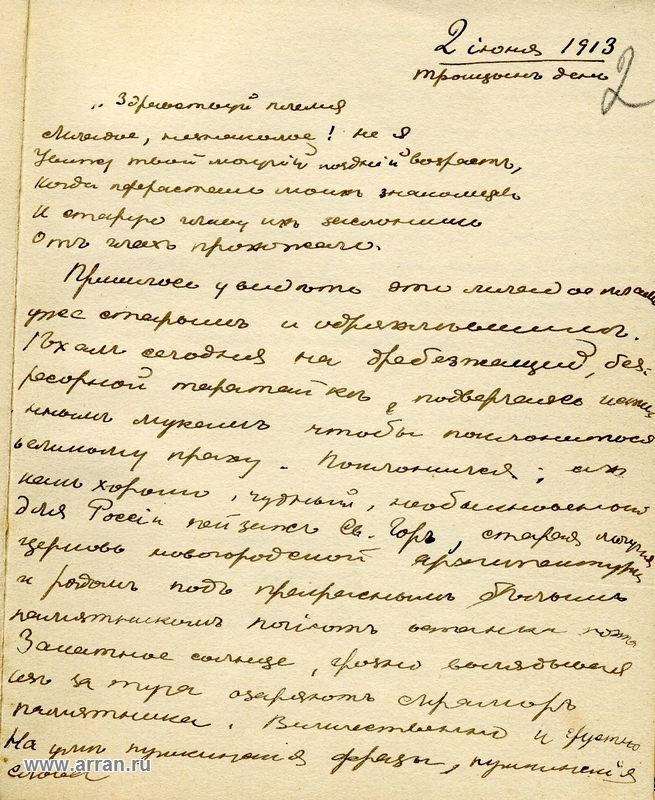 2 іюня 1913
троицынъ день
2
„Здравствуй племя
Младое, незнакомое! не я
Увижу твой могучій поздній возрастъ,
Когда перерастешь моихъ знакомцевъ
И старую главу ихъ заслонишь
Отъ глазъ прохожаго.
Пришлось увидѣть это младое племя
уже старымъ и одряхлѣвшимъ.
Ѣхалъ сегодня на дребезжащей, без-
рессорной таратайкѣ, подвергаясь истин-
нымъ мукамъ чтобы поклониться
великому праху. Поклонился; ахъ
какъ хорошо, чудный, необыкновенный
для Россіи пейзажъ Св. Горъ, старая могучая
церковь новгородской архитектуры
и рядомъ подъ прекраснымъ бѣлымъ
памятникомъ почіютъ останки поэта
Закатное солнце, грозно выглядывая
изъ за тучъ озаряютъ мраморъ
памятника. Величественно и грустно
На умѣ пушкинскія фразы, пушкинскія
слова
www.arran.ru